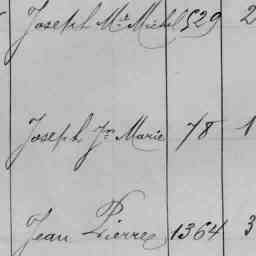 Joseph Me Michel 529 2
Joseph Jn Marie 78 1
Jean Pierre 1364 3